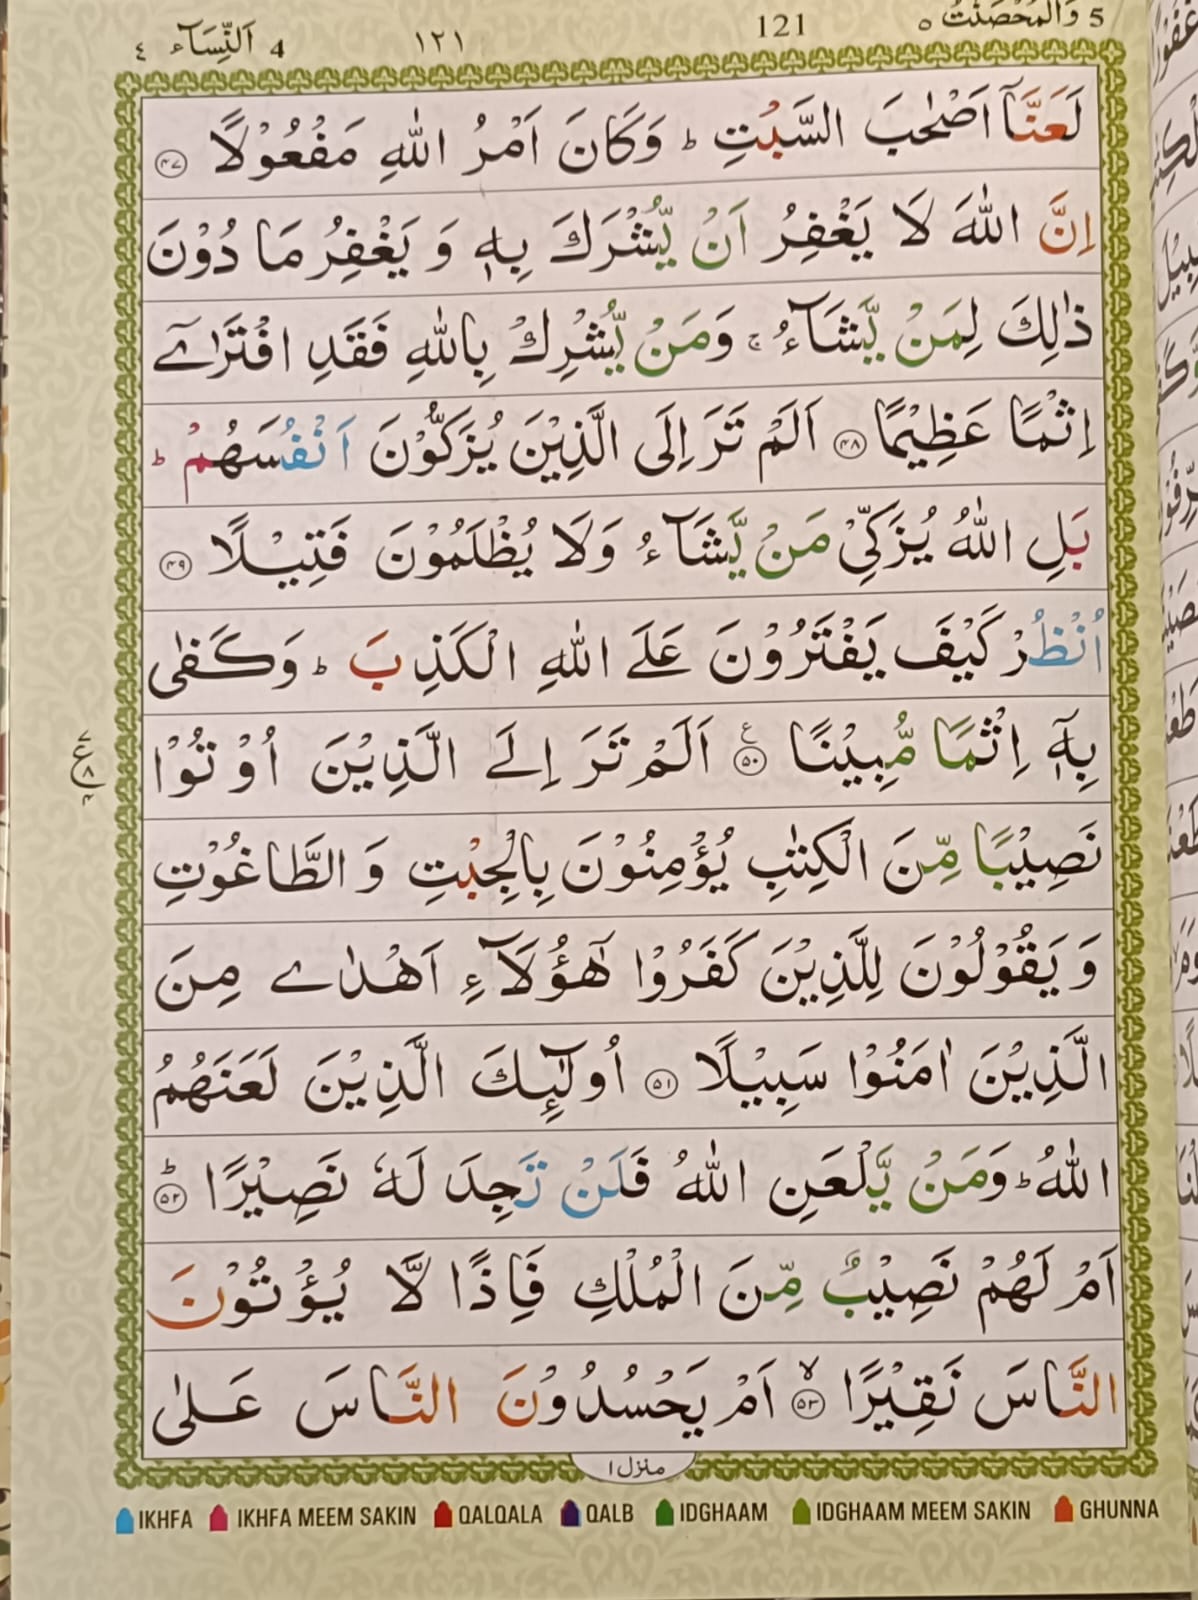 5 وَالْمُحْصَنٰتُ ٥ 121 ١٢١ 4 اَلنِّسَآء ٤
لَعَنَّآ اَصْحٰبَ السَّبْتِ ؕ وَكَانَ اَمْرُ اللّٰهِ مَفْعُوْلًا ۴۷
اِنَّ اللّٰهَ لَا يَغْفِرُ اَنْ يُّشْرَكَ بِهٖ وَ يَغْفِرُ مَا دُوْنَ
ذٰلِكَ لِمَنْ يَّشَآءُ ۚ وَمَنْ يُّشْرِكْ بِاللّٰهِ فَقَدِ افْتَرٰٓے
اِثْمًا عَظِيْمًا ۴۸ اَلَمْ تَرَ اِلَى الَّذِيْنَ يُزَكُّوْنَ اَنْفُسَهُمْ ؕ
بَلِ اللّٰهُ يُزَكِّیْ مَنْ يَّشَآءُ وَلَا يُظْلَمُوْنَ فَتِيْلًا ۴۹
اُنْظُرْ كَيْفَ يَفْتَرُوْنَ عَلَے اللّٰهِ الْكَذِبَ ؕ وَكَفٰی
بِهٖۤ اِثْمًا مُّبِيْنًا ۵۰ ع اَلَمْ تَرَ اِلَے الَّذِيْنَ اُوْتُوْا
نَصِيْبًا مِّنَ الْكِتٰبِ يُؤْمِنُوْنَ بِالْجِبْتِ وَ الطَّاغُوْتِ
وَ يَقُوْلُوْنَ لِلَّذِيْنَ كَفَرُوْا هٰٓؤُلَآءِ اَهْدٰے مِنَ
الَّذِيْنَ اٰمَنُوْا سَبِيْلًا ۵۱ اُولٰٓئِكَ الَّذِيْنَ لَعَنَهُمُ
اللّٰهُ ؕ وَمَنْ يَّلْعَنِ اللّٰهُ فَلَنْ تَجِدَ لَهٗ نَصِيْرًا ؕ ۵۲
اَمْ لَهُمْ نَصِيْبٌ مِّنَ الْمُلْكِ فَاِذًا لَّا يُؤْتُوْنَ
النَّاسَ نَقِيْرًا ۙ ۵۳ اَمْ يَحْسُدُوْنَ النَّاسَ عَلٰی
منزل ۱
IKHFA IKHFA MEEM SAKIN QALQALA QALB IDGHAAM IDGHAAM MEEM SAKIN GHUNNA